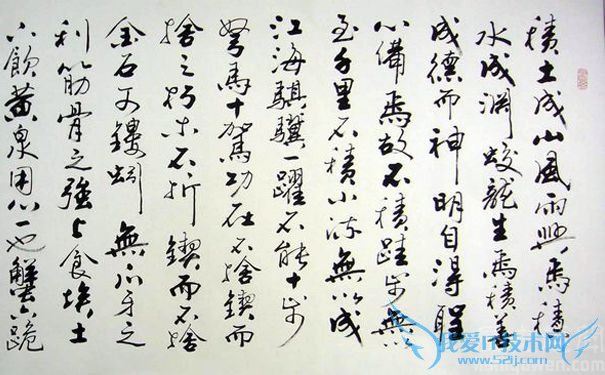 積土成山風雨興焉積
水成渊蛟龍生焉積善
成德而神明自得聖
心備焉故不積跬步無以
至千里不積小流無以成
江海騏驥一躍不能十步
駑馬十駕功在不捨鍥而
捨之朽木不折鍥而不捨
金石可鏤蚓無爪牙之
利筋骨之強上食埃土
下飲黄泉用心一也蟹六跪
我爱IT技术网
www.52ij.com